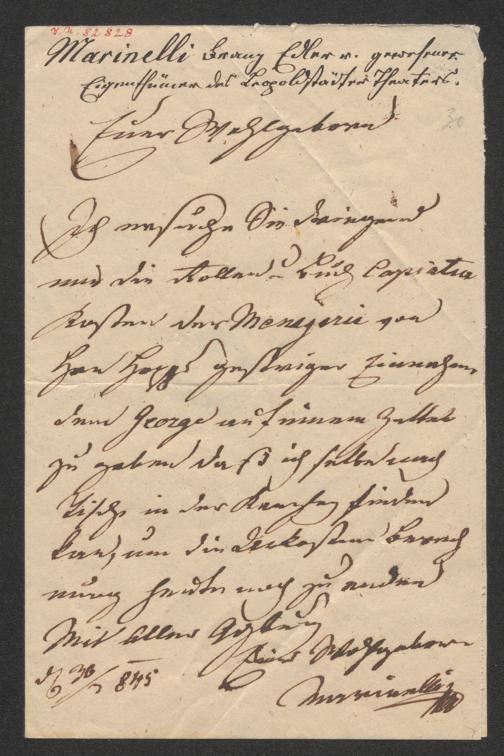 J. N. 82828
Marinelli Franz Edler v. gewesener
Eigenthümer des Leopoldstädter Theaters.
30
Euer Wohlgeborn!
Ich ersuche Sie dringend
mir die Rollen u Buch Copiatur
Kosten der Menagerie von
Herr Hopp gestriger Einnahm
dem George auf einem Zettel
zu geben daß ich selbe nach
Tisch in der Kanzley finden
kan, um die Unkosten berech
nung heute noch zu enden
Mit aller Achtung
Euer Wohlgeborn
d 30/ 845
Marinelli